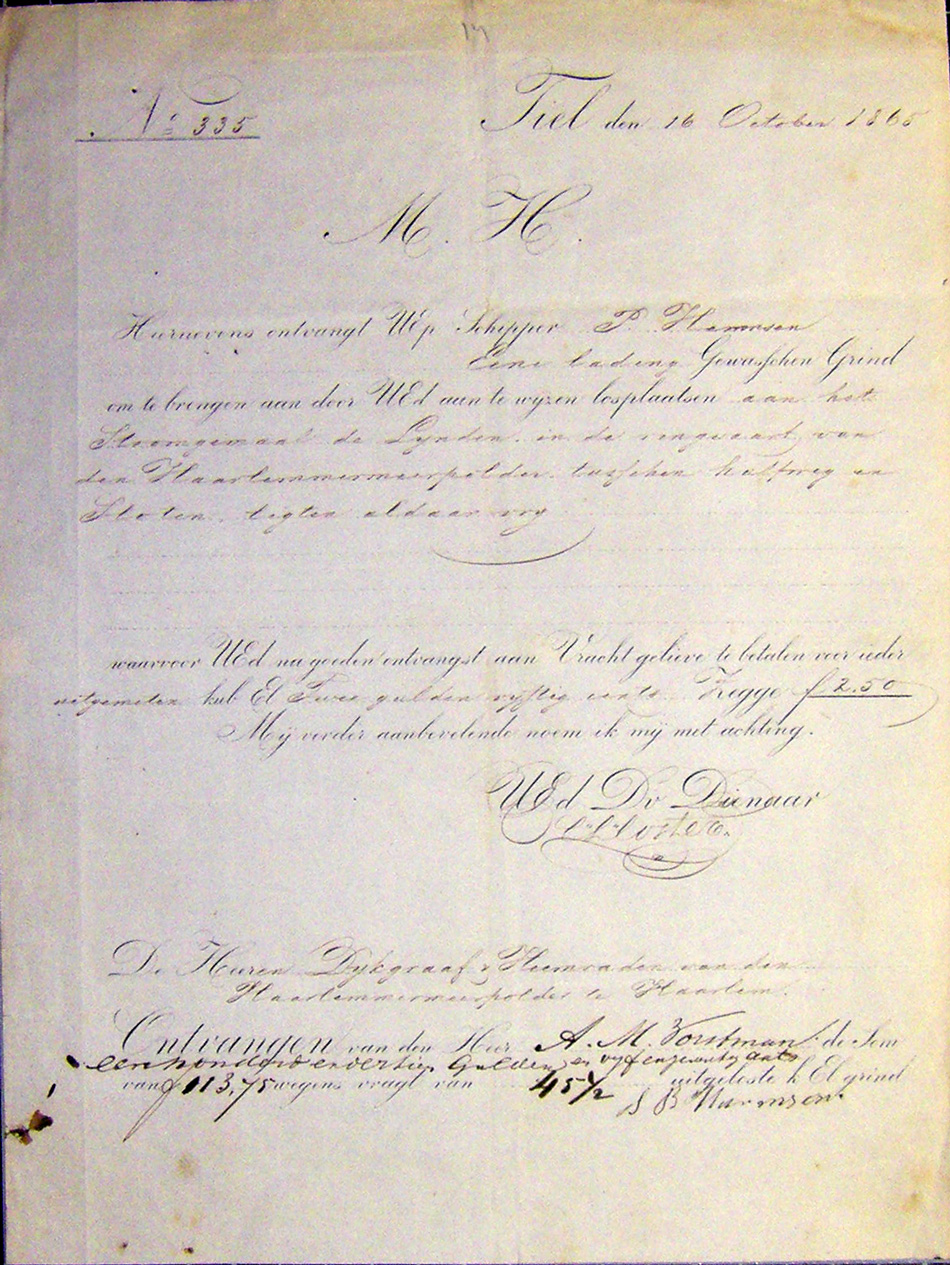 14
No 335
Tiel den 16 October 1865
M. H.
Hiernevens ontvangt UEp Schipper P. Harmsen
Eene lading Gewasschen Grind
om te brengen aan door UEd aan te wyzen losplaatsen aan het
Stoomgemaal de Lynden in de ringvaart van
den Haarlemmermeerpolder tusschen halfweg en
Sloten ligter aldaar vry
waarvoor UEd na goeden ontvangst aan Vracht gelieve te betalen voor ieder
uitgemeten kub El Twee gulden vyftig cents Zegge f 2.50
Mij verder aanbevelende noem ik mij met achting.
UEd Dv Dienaar
De Heeren Dykgraaf & Heemraden van den
Haarlemmermeerpolder te Haarlem.
Ontvangen van den Heer A. M. Vorstman de Som
een honderd en dertien Gulden en vyf en zeventig cents
van f 113,75 wegens vragt van 45½ uitgeloste k El grind
Harmsen